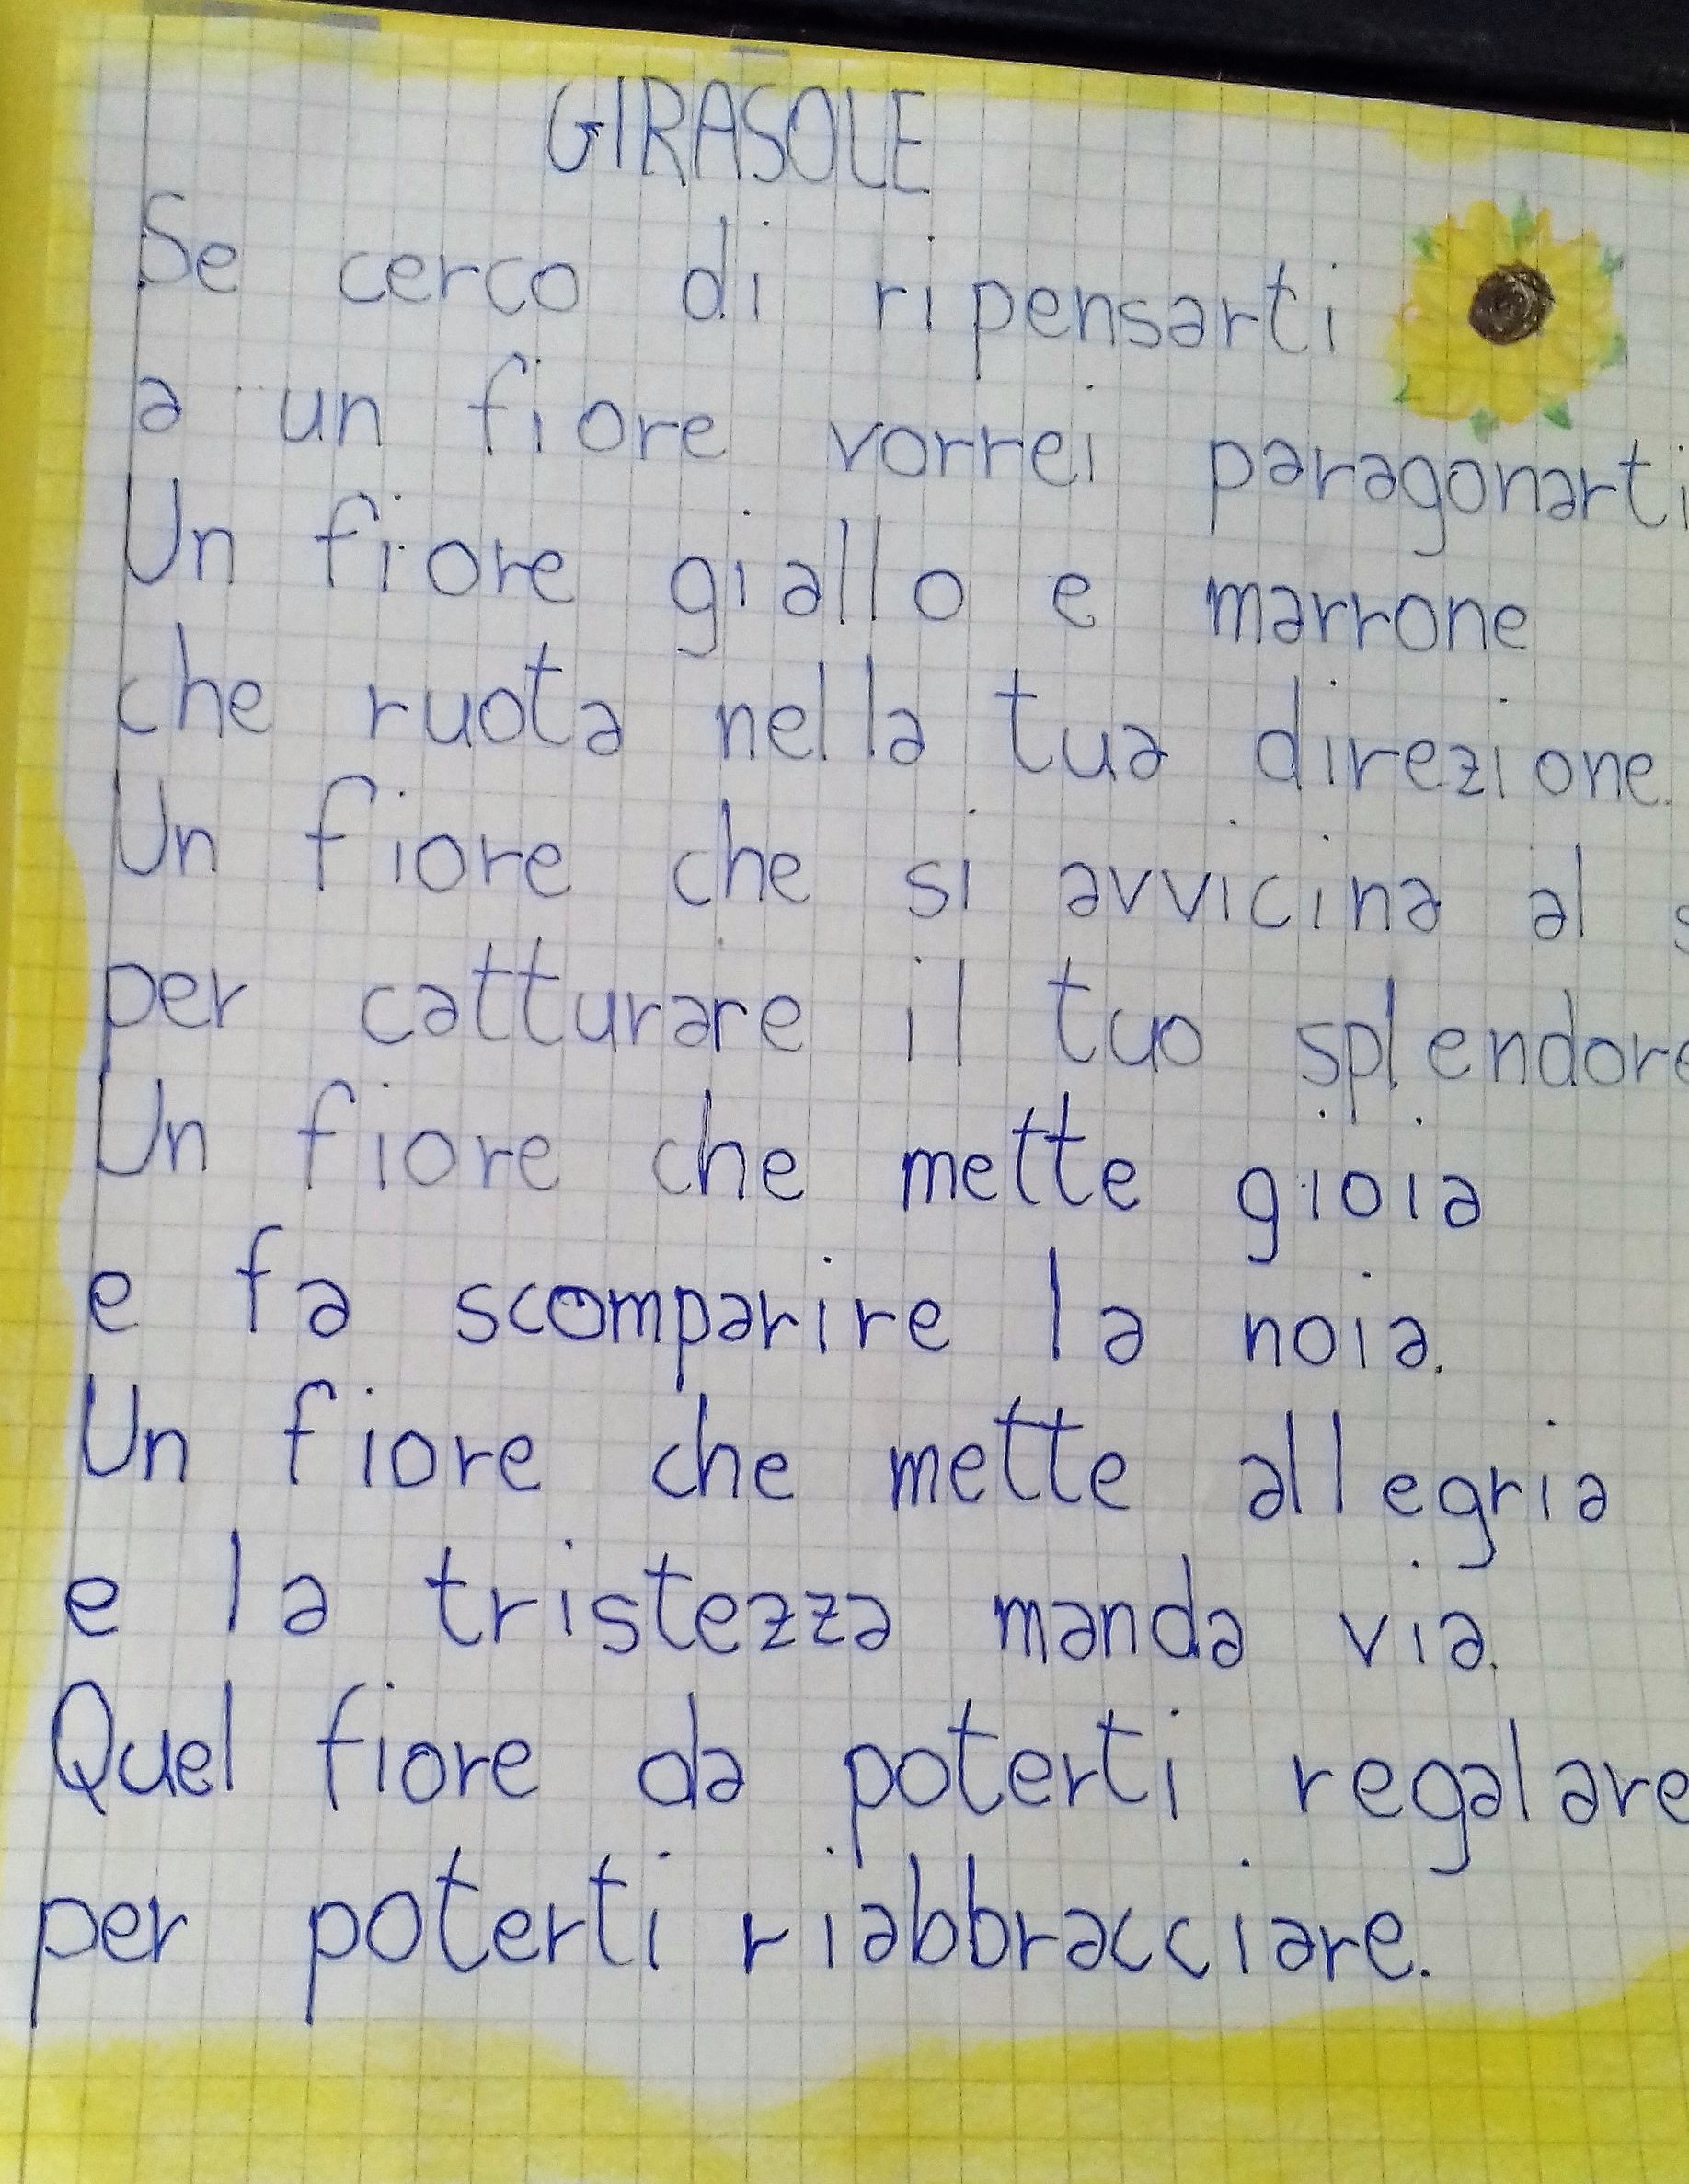 GIRASOLE
Se cerco di ripensarti
a un fiore vorrei paragonarti
Un fiore giallo e marrone
che ruota nella tua direzione.
Un fiore che si avvicina al
per catturare il tuo splendore
Un fiore che mette gioia
e fa scomparire la noia.
Un fiore che mette allegria
e la tristezza manda via.
Quel fiore da poterti regalare
per poterti riabbracciare.